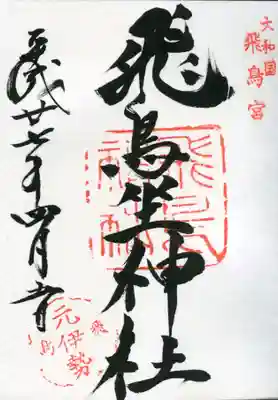 大和国
飛鳥宮
飛鳥坐神社
平成廿七年四月
元伊勢
飛鳥